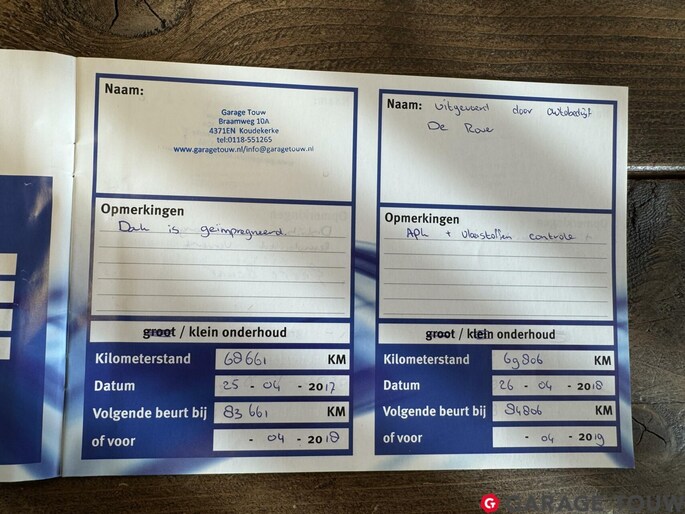 Naam:
Garage Touw
Braamweg 10A
4371EN Koudekerke
tel:0118-551265
www.garagetouw.nl/info@garagetouw.nl
Opmerkingen
Dak is geïmpregneerd
groot / klein onderhoud
Kilometerstand 68661 KM
Datum 25 - 04 - 2017
Volgende beurt bij 83661 KM
of voor - 04 - 2018
Naam: uitgevoerd door autobedrijf
De
Opmerkingen
APK + vloeistoffen controle
groot / klein onderhoud
Kilometerstand 69806 KM
Datum 26 - 04 - 2018
Volgende beurt bij 84806 KM
of voor - 04 - 2019
GARAGE TOUW